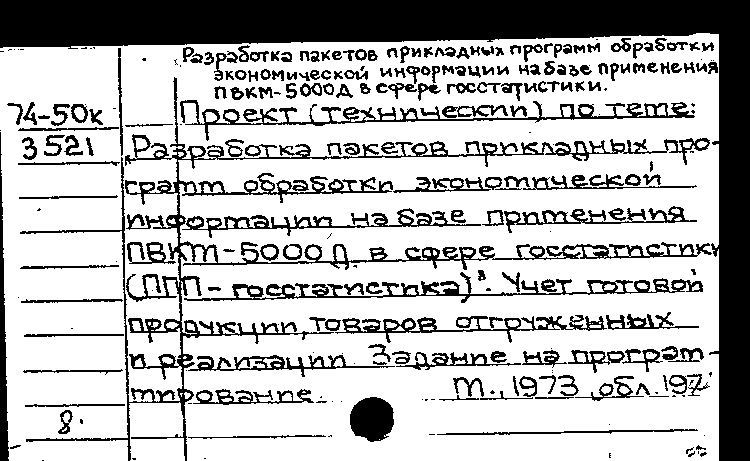 Разработка пакетов прикладных программ обработки
экономической информации на базе применения
ПВКМ-5000Д в сфере госстатистики.
74-50к Проект (технический) по теме:
3521 „Разработка пакетов прикладных про-
грамм обработки экономической
информации на базе применения
ПВКМ-5000Д в сфере госстатистики
(ППП-госстатистика)". Учет готовой
продукции, товаров отгруженных
и реализации. Задание на програм-
мирование. М., 1973, обл.
8.